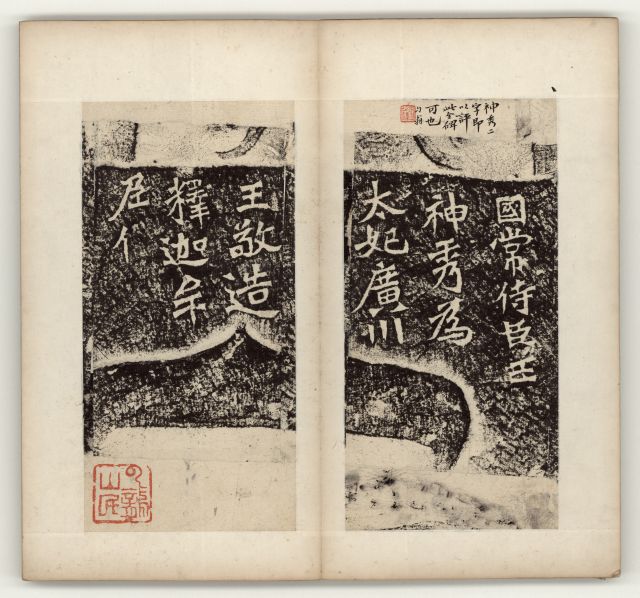 神秀二
字即
以評
此全碑
可也
國常侍臣王
神秀為
太妃廣川
王敬造
釋迦牟
尼